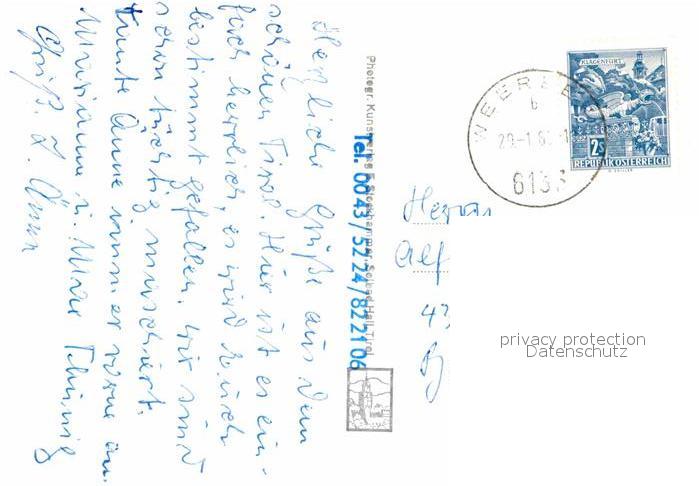 Herzliche Grüße aus dem
schönen Tirol. Hier ist es ein-
fach herrlich, es wird Euch
bestimmt gefallen. Wir sind
schon tüchtig marschiert.
Tante Änne immer vorne an.
Marianne u. Mare
Gruß. L. Änne
Photogr. Kunstverlag Solbad Hall, Tirol
Tel. 0043/5224/822106
WEERBERG
b
6133
KLAGENFURT
2S
REPUBLIK ÖSTERREICH
Herrn
Alf
43
privacy protection
Datenschutz